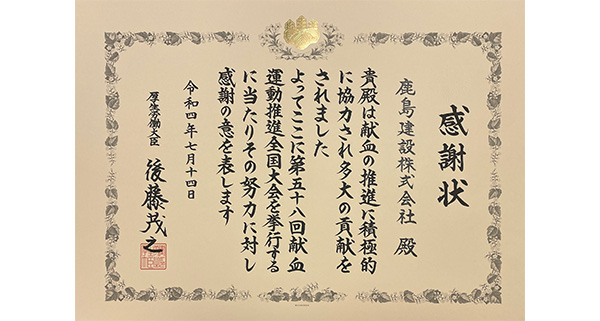 感謝状
鹿島建設株式会社 殿
貴殿は献血の推進に積極的
に協力され多大の貢献を
されました
よってここに第五十八回献血
運動推進全国大会を挙行する
に当たりその努力に対し
感謝の意を表します
令和四年七月十四日
厚生労働大臣 後藤茂之